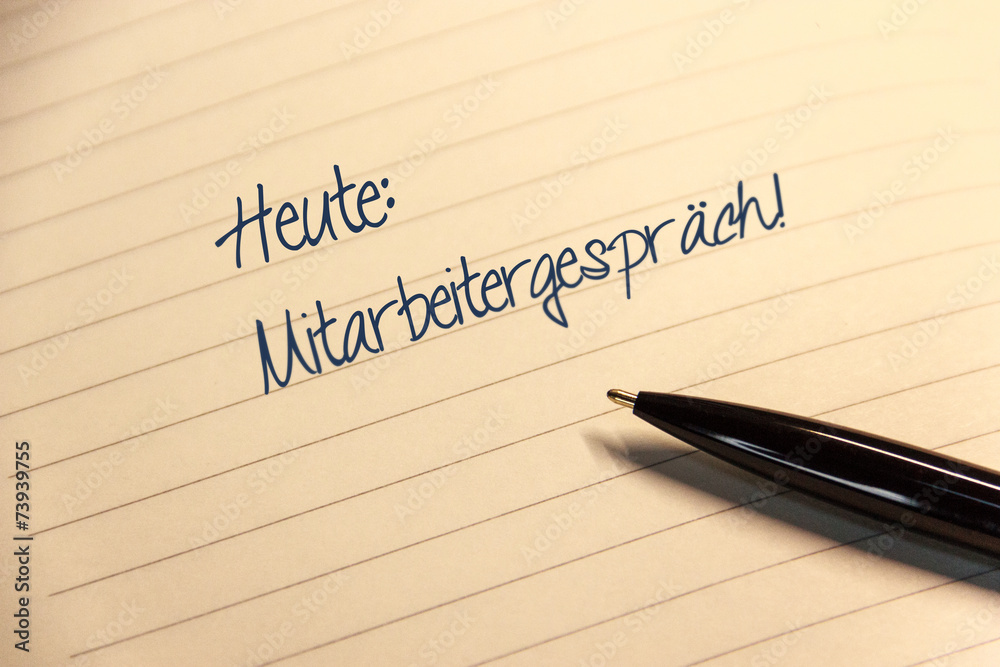 Heute:
Mitarbeitergespräch!
Adobe Stock | #73939755